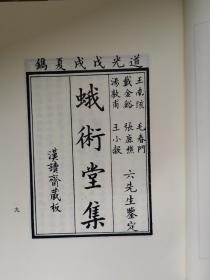 道光戊戌夏鐫
王南陔 毛春門
戴金谿 張鹿樵
湯敦甫 王小
六先生鑒定
蛾術堂集
漢讀齋藏板
九